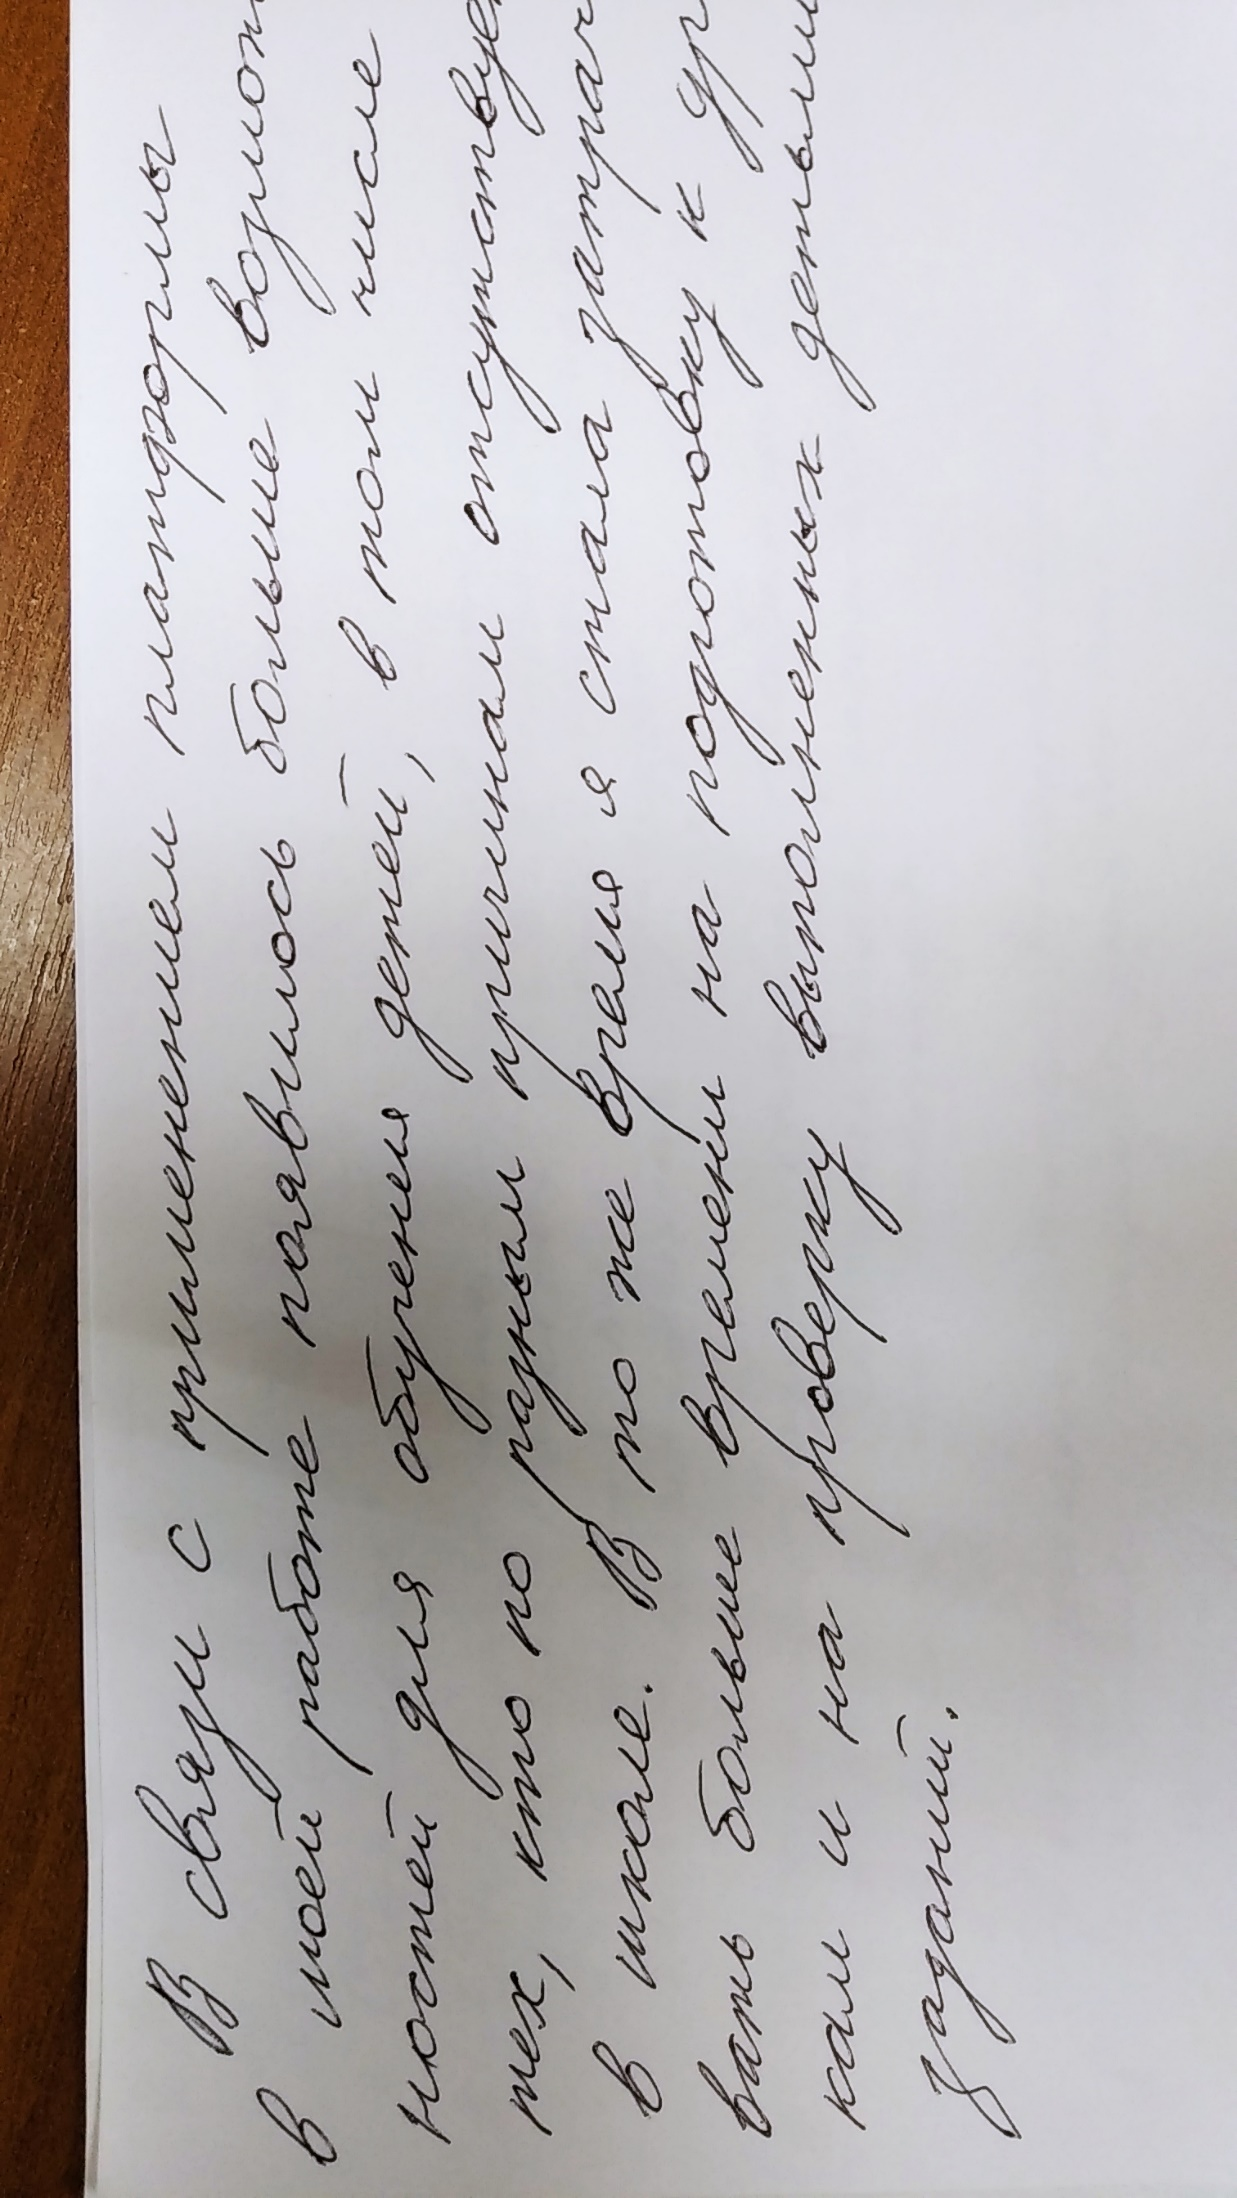 В связи с применением платформы
в моей работе появилось больше возмож
ностей для обучения детей, в том числе
тех, кто по разным причинам отсутствуе
в школе. В то же время я стала затрач
вать больше времени на подготовку к ур
кам и на проверку выполненных детьми
заданий.